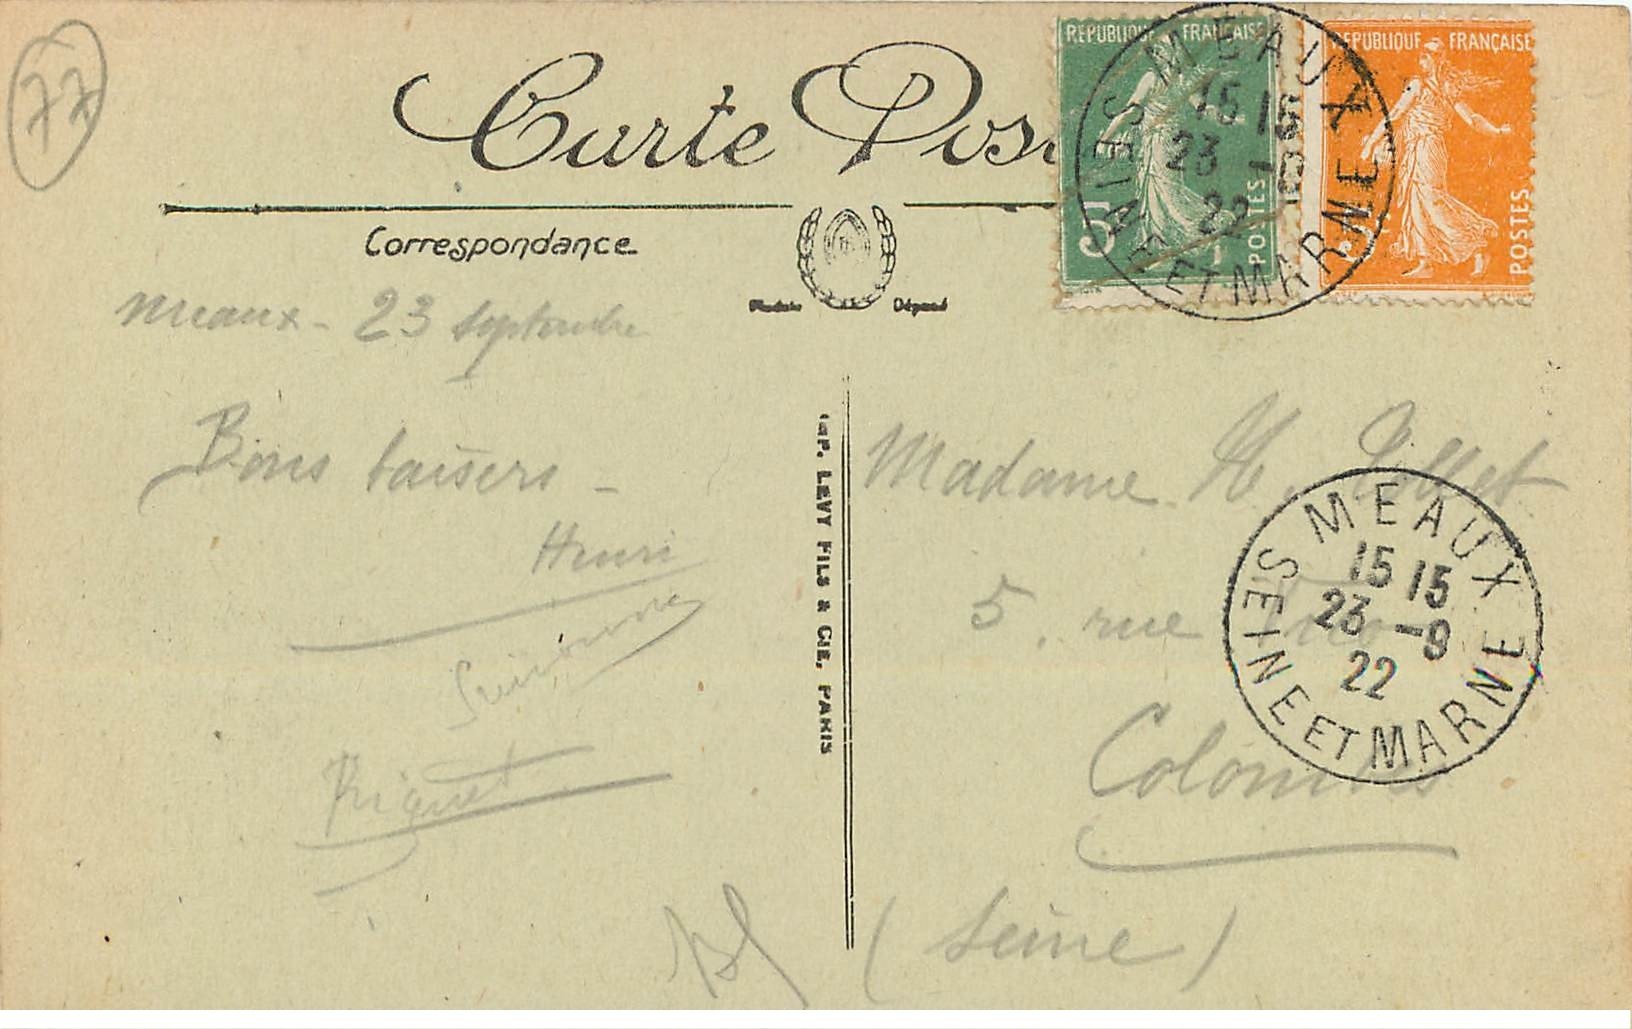 77
Carte Pos
Correspondance
Modèle Déposé
Meaux - 23 Septembre
Bons baisers -
Henri
Simonne
Riquet
IMP. LEVY FILS & CIE, PARIS
REPUBLIQUE FRANÇAISE
5
POSTES
REPUBLIQUE FRANÇAISE
5
POSTES
MEAUX
15 15
23 -9
22
SEINE ET MARNE
Madame H.
5. rue
Colombes
(Seine)
MEAUX
15 15
23 -9
22
SEINE ET MARNE